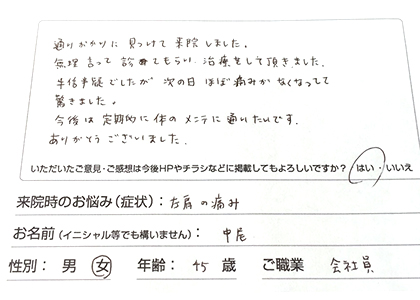 通りがかりに見つけて来院しました。
無理言って診てもらい治療をして頂きました。
半信半疑でしたが次の日ほぼ痛みがなくなってて
驚きました。
今後は定期的に体のメンテに通いたいです。
ありがとうございました。
いただいたご意見・ご感想は今後HPやチラシなどに掲載してもよろしいですか？ はい・いいえ
来院時のお悩み(症状)：左肩の痛み
お名前(イニシャル等でも構いません)：中尾
性別：男 女 年齢：45歳 ご職業 会社員